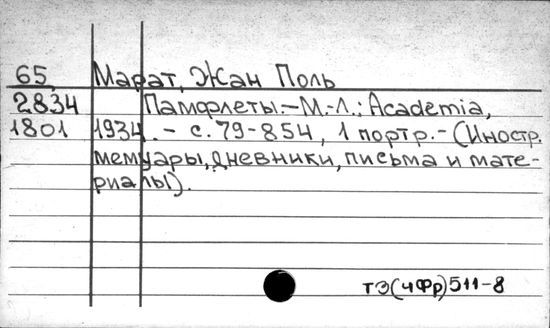 65 Марат, Жан Поль
2834 Памфлеты.-М.-Л.: Academia,
1801 1934. - с. 79-854, 1 портр.- (Иностр.
мемуары, дневники, письма и мате-
риалы).
тЭ(чФр)511-8